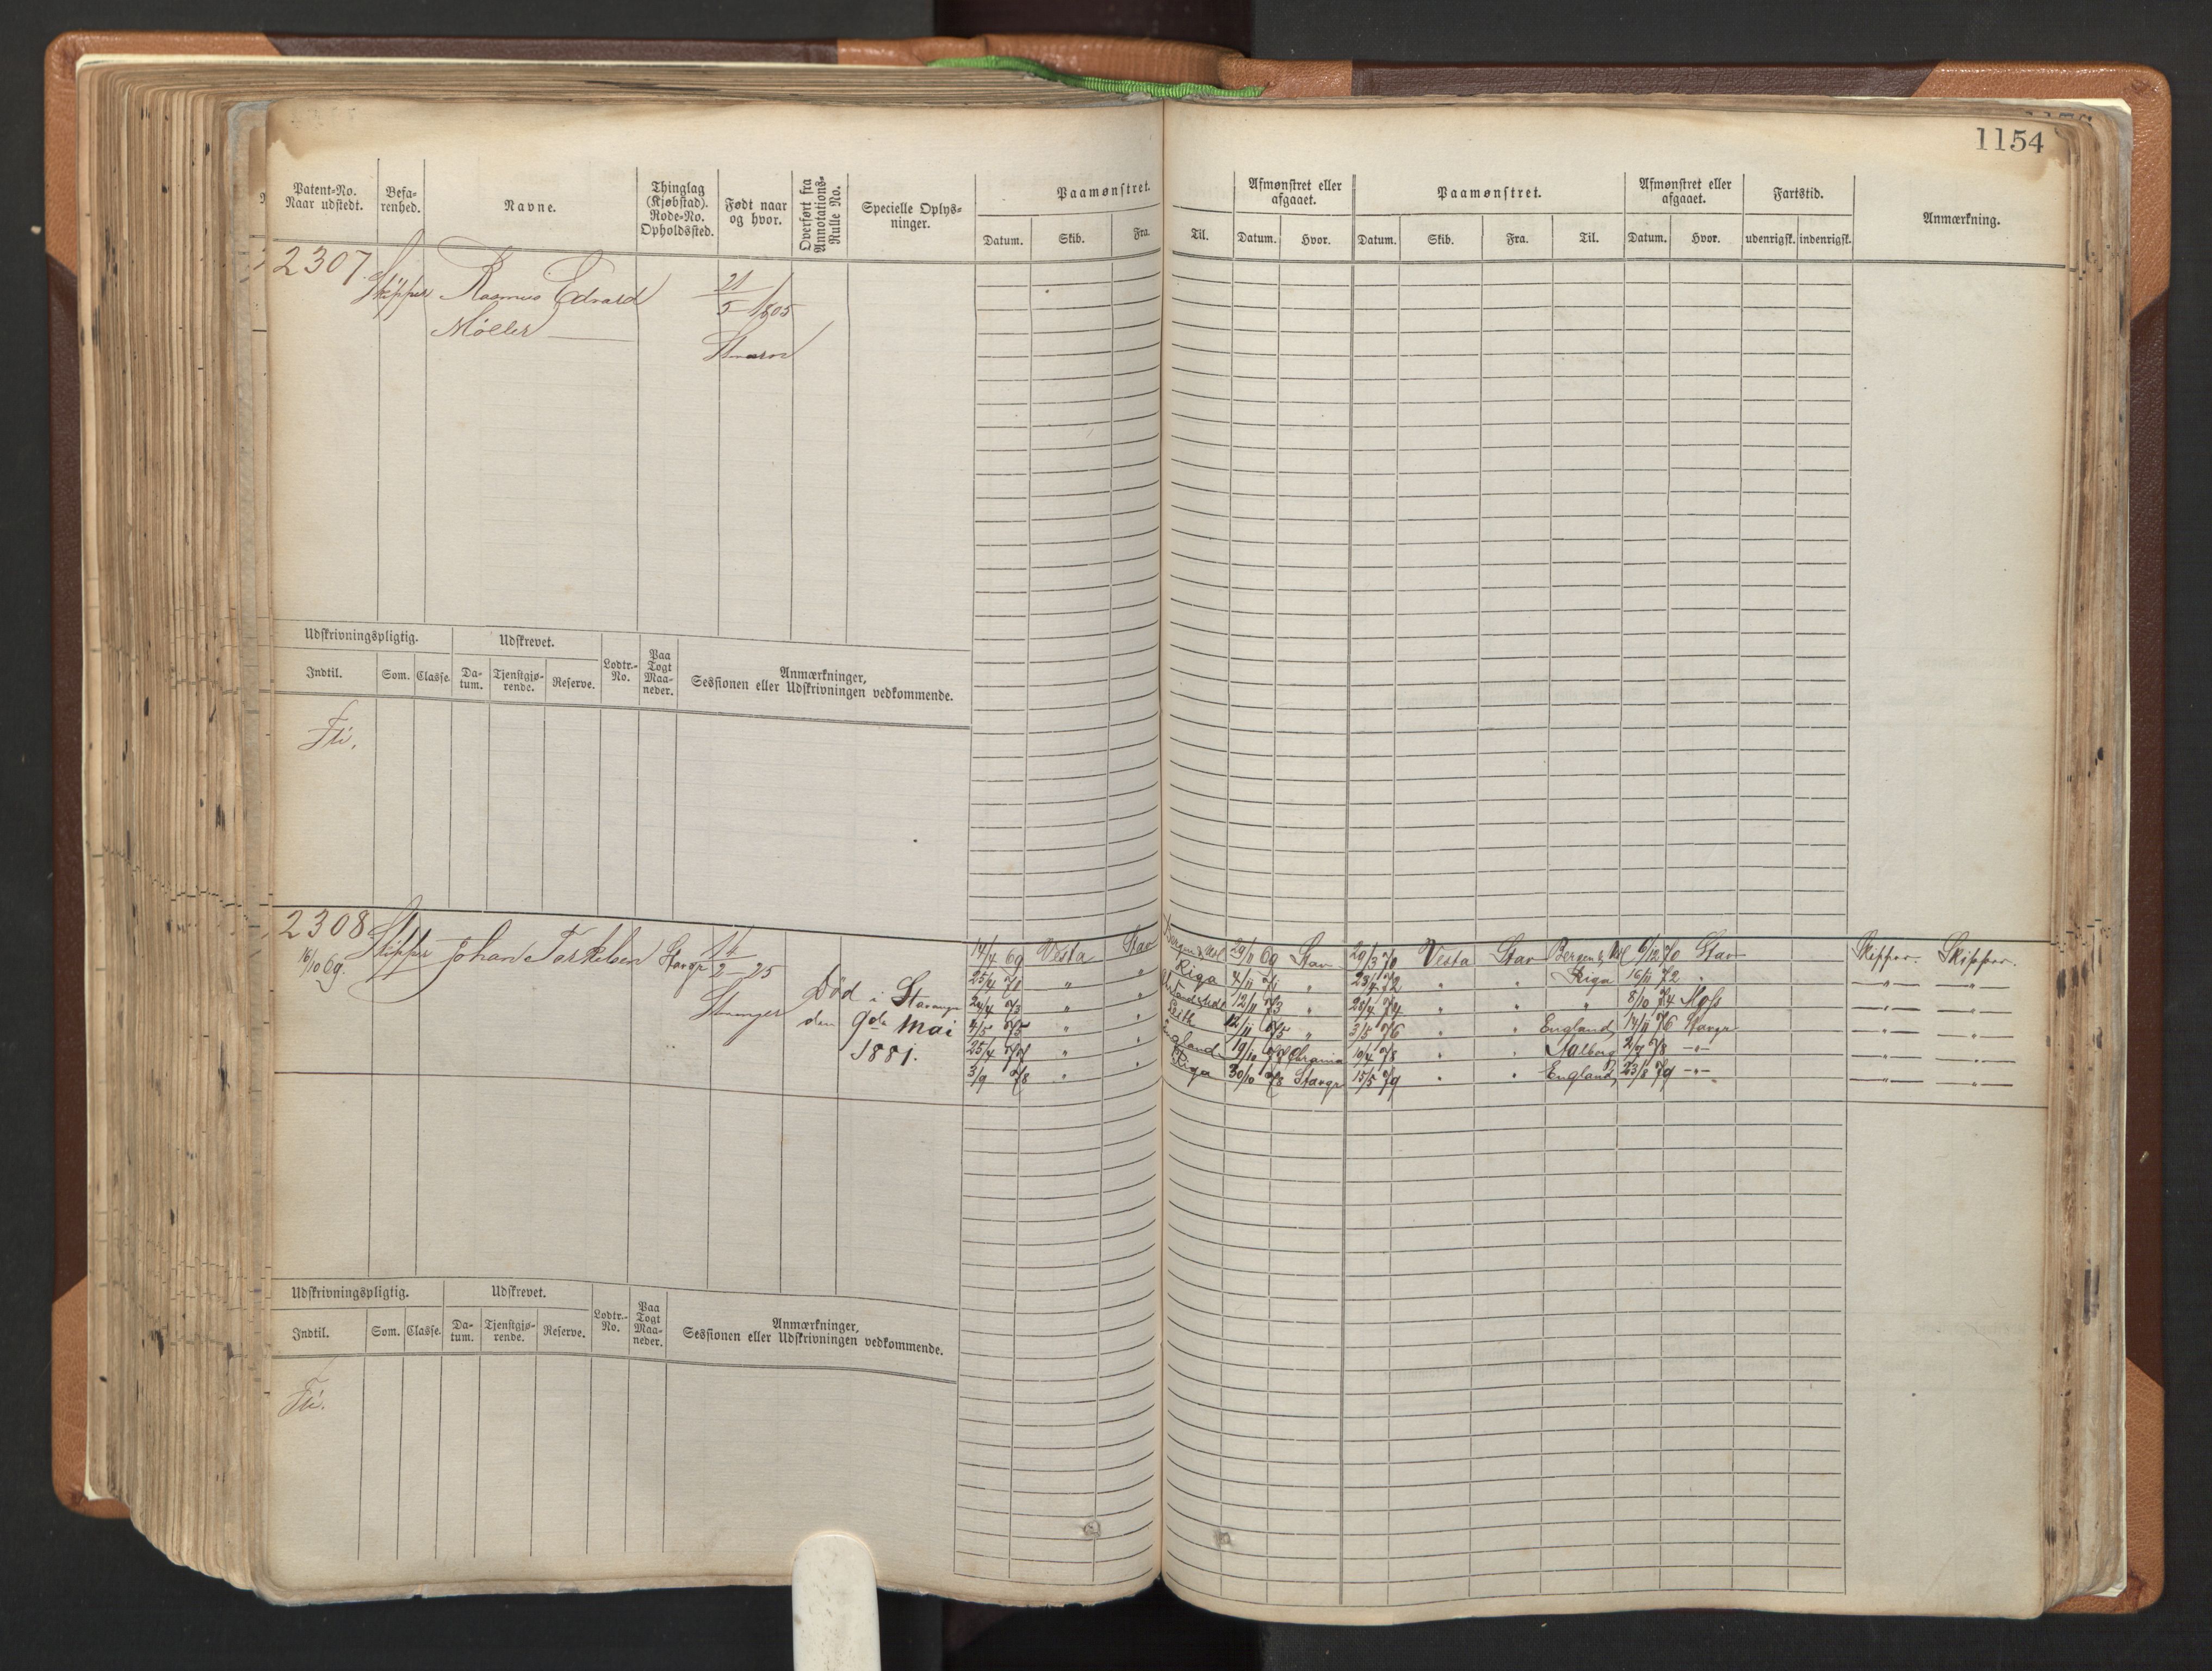 1154
Patent-No. Naar udstedt. Befa-renhed. Navne. Thinglag (Kjøbstad). Rode-No. Opholdssted. Født naar og hvor. Overført fra Annotations-Rulle No. Specielle Oplys-ninger. Paamønstret. Afmønstret eller afgaaet. Paamønstret. Afmønstret eller afgaaet. Fartstid. Anmærkning.
Datum. Skib. Fra. Til. Datum. Hvor. Datum. Skib. Fra. Til. Datum. Hvor. udenrigsk. indenrigsk.
2307 Skipper Rasmus Edvard 21/5 1805
Møller
Udskrivningspligtig. Udskrevet. Lodtr.-No. Paa Togt Maa-neder. Anmærkninger, Sessionen eller Udskrivningen vedkommende.
Indtil. Som. Classe. Da-tum. Tjenstgjø-rende. Reserve.
Fri.
2308 Skipper Johan Torkelsen Stavgr 14/2 - 25
16/10 69. Stavanger
Død i Stavanger
den 9de Mai
1881.
14/4 69 Vesta Stav Bergen & 29/11 69 Stav 29/3 70 Vesta Stav Bergen & 6/12 70 Stav Skipper. Skipper.
25/4 71 " " Riga 4/11 71 " 23/4 72 " " Riga 16/11 72 " —"— —"—
24/4 73 " " 12/11 73 " 28/4 74 " " " 8/10 74 Moss —"— —"—
4/5 75 " " Leith 12/11 75 " 3/5 76 " " England 14/11 76 Stavgr —"— —"—
25/4 77 " " England 19/10 77 Chrania 10/4 78 " " Aalborg 2/7 78 —"— —"— —"—
3/9 78 " " Riga 30/10 78 Stavgr 15/5 79 " " England 23/8 79 —"— —"— —"—
Udskrivningspligtig. Udskrevet. Lodtr.-No. Paa Togt Maa-neder. Anmærkninger, Sessionen eller Udskrivningen vedkommende.
Indtil. Som. Classe. Da-tum. Tjenstgjø-rende. Reserve.
Fri.